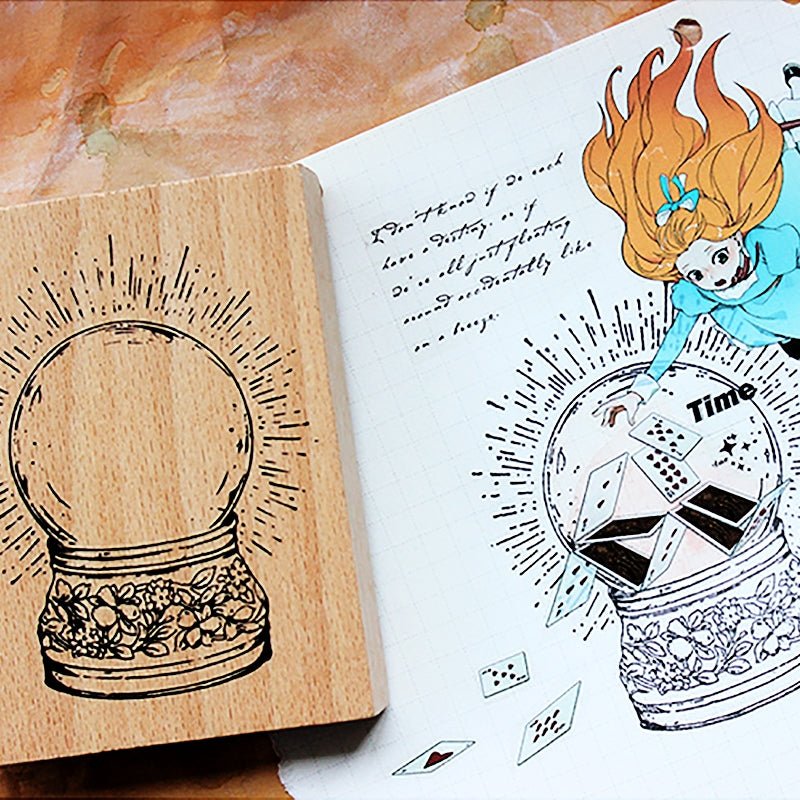 I don't know if we each
have a destiny, or if
we're all just floating
around accidentally like
on a breeze.
Time